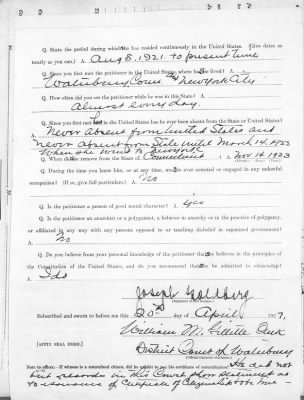 Q. State the period during which she has resided continuously in the United States. (Give dates as
nearly as you can.) A. Aug 8, 1921 to present time
Q. Since you first met the petitioner in the United States, where has she lived? A.
Waterbury, Conn. and New York City
Q. How often did you see the petitioner while he was in this State? A.
Almost every day.
Q. Since you first met the petitioner has he ever been absent from the United States or State?
Never absent from United States and
never absent from State until March 14, 1923
When she went to New York
Q. When did she remove from the State of Connecticut A. Nov 14 1923
Q. During the time you knew him, or at any time, was he ever arrested or engaged in any unlawful
occupation? (If so, give full particulars.) A. No
Q. Is the petitioner a person of good moral character? A. yes
Q. Is the petitioner an anarchist or a polygamist, a believer in anarchy or in the practice of polygamy,
or affiliated in any way with any persons opposed to or teaching disbelief in organized government?
A. No
Q. Do you believe from your personal knowledge of the petitioner that she believes in the principles
of the Constitution of the United States, and do you recommend that she be admitted to citizenship?
A. I do
Joseph Goldberg
Subscribed and sworn to before me this 20th day of April, 1927.
William M. Gillette Clerk
[AFFIX SEAL HERE.]
District Court of Waterbury
Note to officer: If witness is a naturalized citizen, did he exhibit to you his certificate of naturalization? He did not
but records in this Court show
as to issuance of Certificate of Citizenship to him